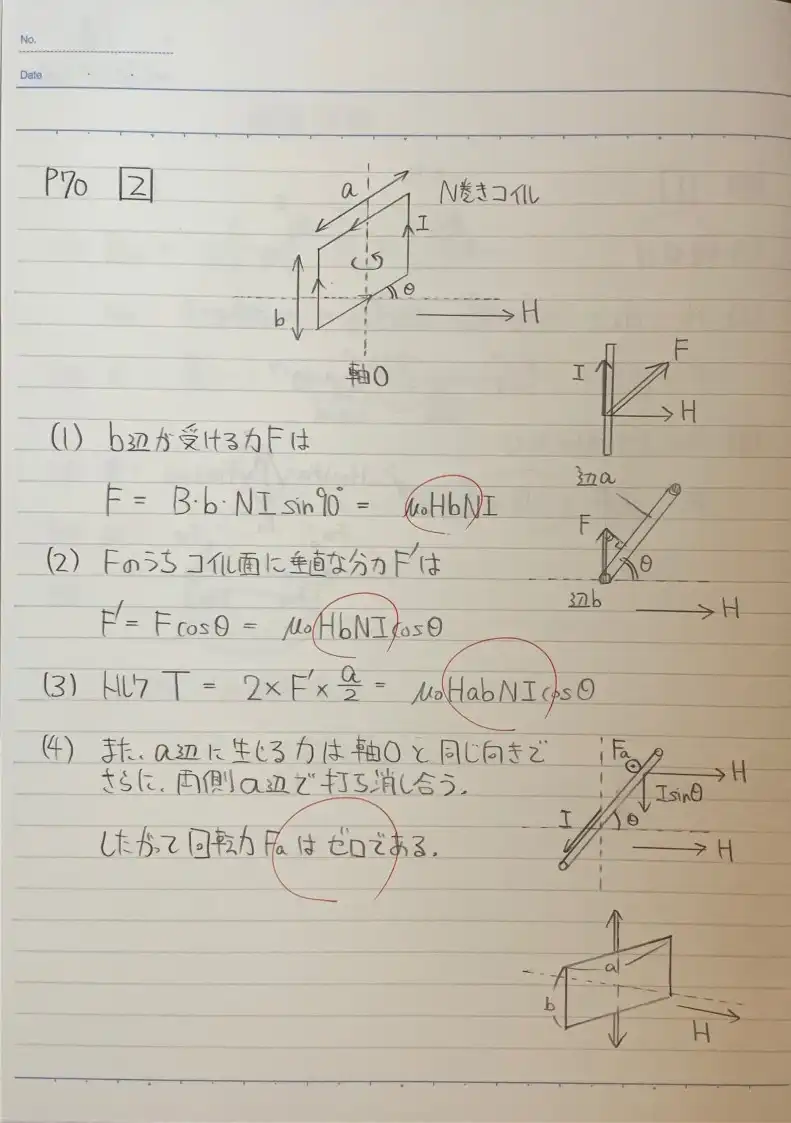 No.
Date
P70 2
a N巻きコイル
I
θ
b
H
軸O
I F
H
(1) b辺が受ける力Fは
F = B・b・NI sin90° = μ₀HbNI
辺a
F
θ
(2) Fのうちコイル面に垂直な分力F'は
辺b
H
F' = Fcosθ = μ₀HbNIcosθ
(3) トルク T = 2×F'×a/2 = μ₀HabNIcosθ
(4) また、a辺に生じる力は軸Oと同じ向きで
さらに、両側a辺で打ち消し合う。
Fa
H
Isinθ
I
θ
H
したがって回転力Faはゼロである.
a
b
H